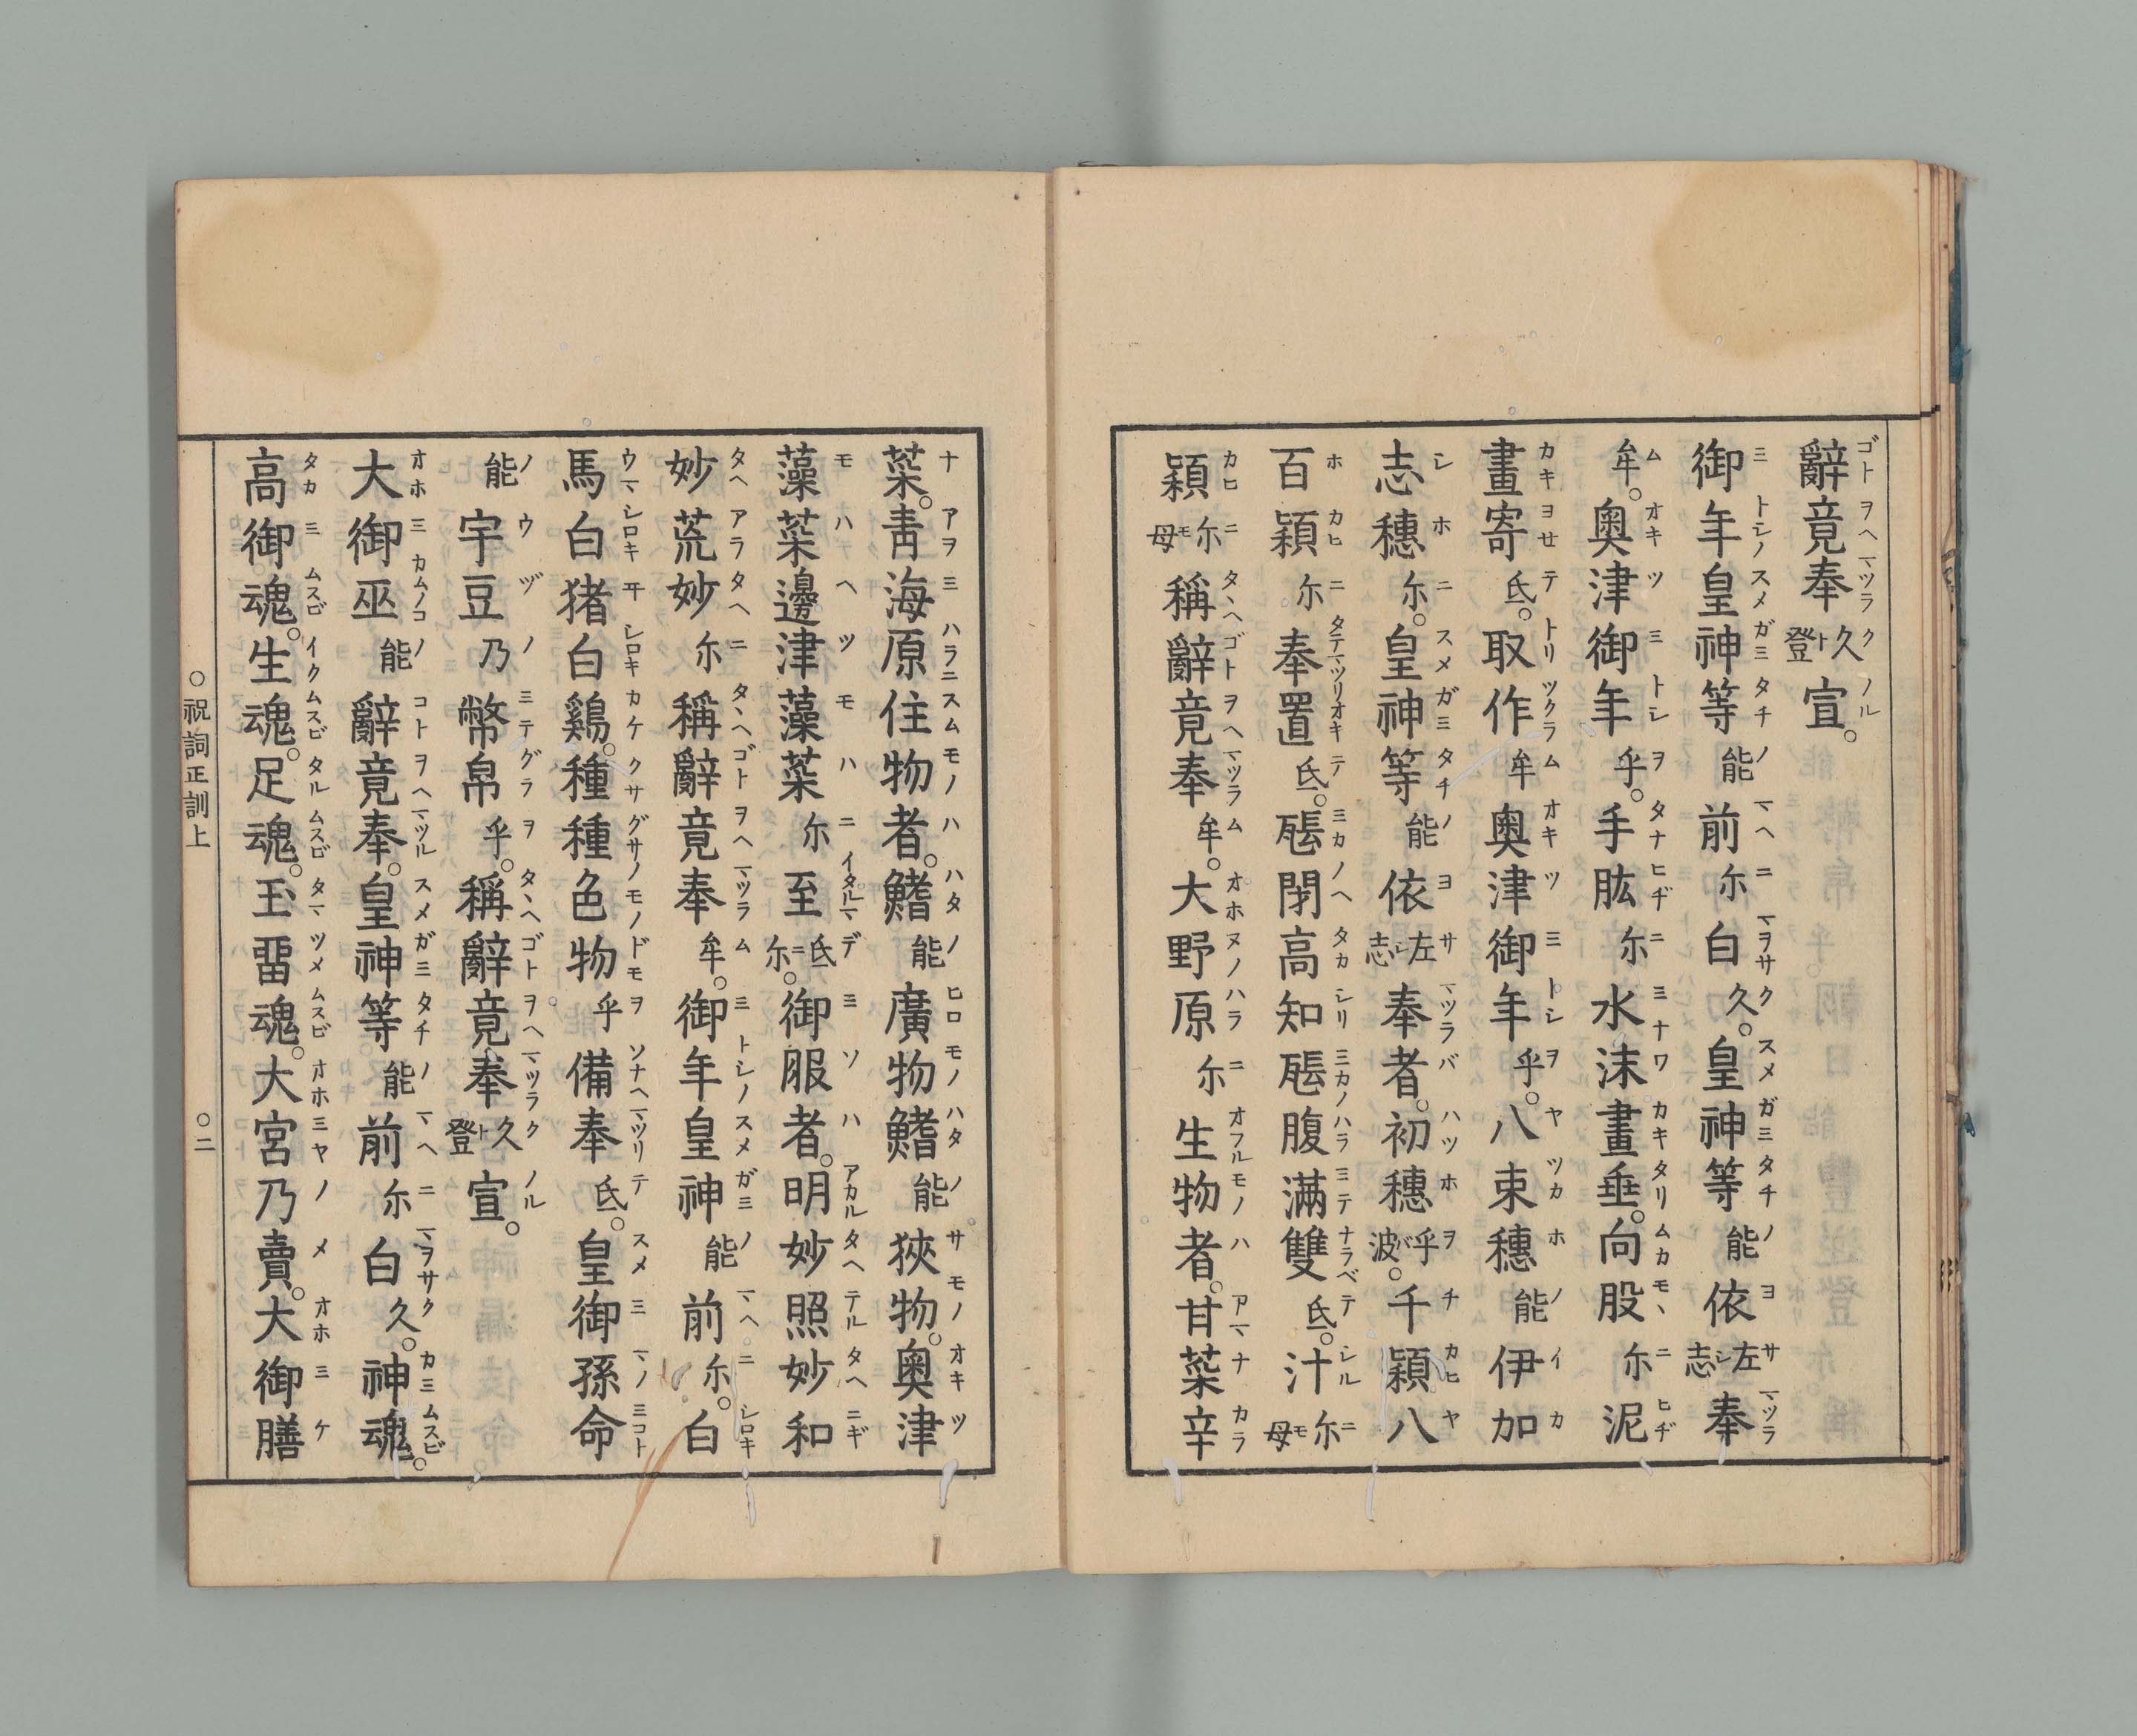 辭竟奉久登宣。
御年皇神等能前尓白久。皇神等能依左志奉
牟。奧津御年乎。手肱尓水沫畫垂。向股尓泥
畫寄氐。取作牟奧津御年乎。八束穗能伊加
志穗尓。皇神等能依左志奉者。初穗乎波。千穎八
百穎尓奉置氐。𤭖閇高知𤭖腹滿雙氐。汁尓母
穎尓母稱辭竟奉牟。大野原尓生物者。甘菜辛
菜。靑海原住物者。鰭能廣物鰭能狹物。奧津
藻菜邊津藻菜尓至氐尓。御服者。明妙照妙和
妙荒妙尓稱辭竟奉牟。御年皇神能前尓。白
馬白猪白鷄。種種色物乎備奉氐。皇御孫命
能宇豆乃幣帛乎。稱辭竟奉久登宣。
大御巫能辭竟奉。皇神等能前尓白久。神魂。
高御魂。生魂。足魂。玉畱魂。大宮乃賣。大御膳
○祝詞正訓上 ○二